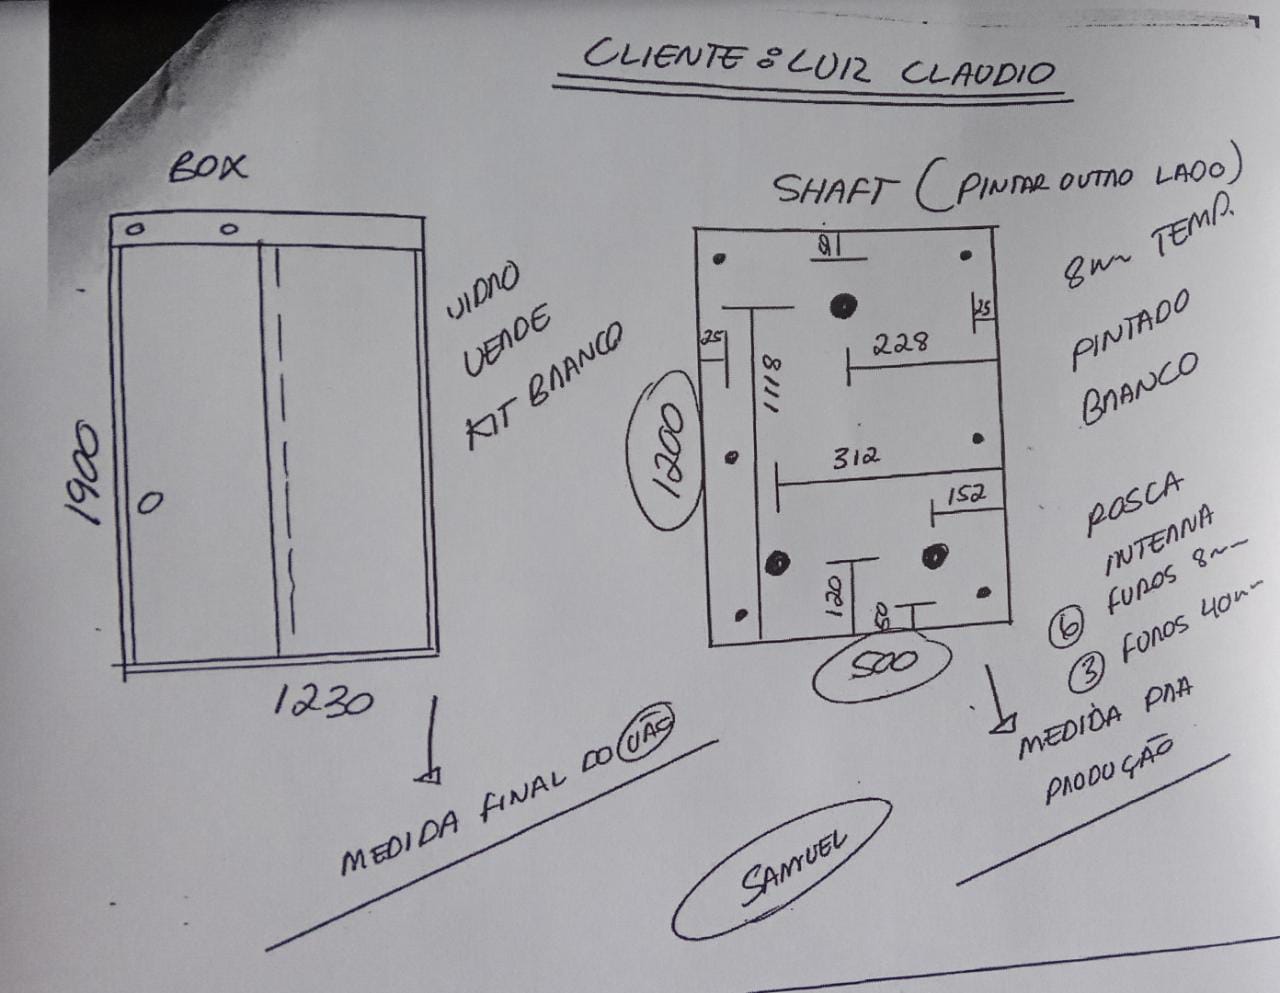 CLIENTE: LUIZ CLAUDIO
BOX
1900
1230
VIDRO
VERDE
KIT BRANCO
MEDIDA FINAL DO VÃO
SHAFT (PINTAR OUTRO LADO)
25
1118
228
25
1200
312
152
120
50
500
8mm TEMP.
PINTADO
BRANCO
ROSCA
INTERNA
6 FUROS 8mm
3 FUROS 40mm
MEDIDA PRA
PRODUÇÃO
SAMUEL